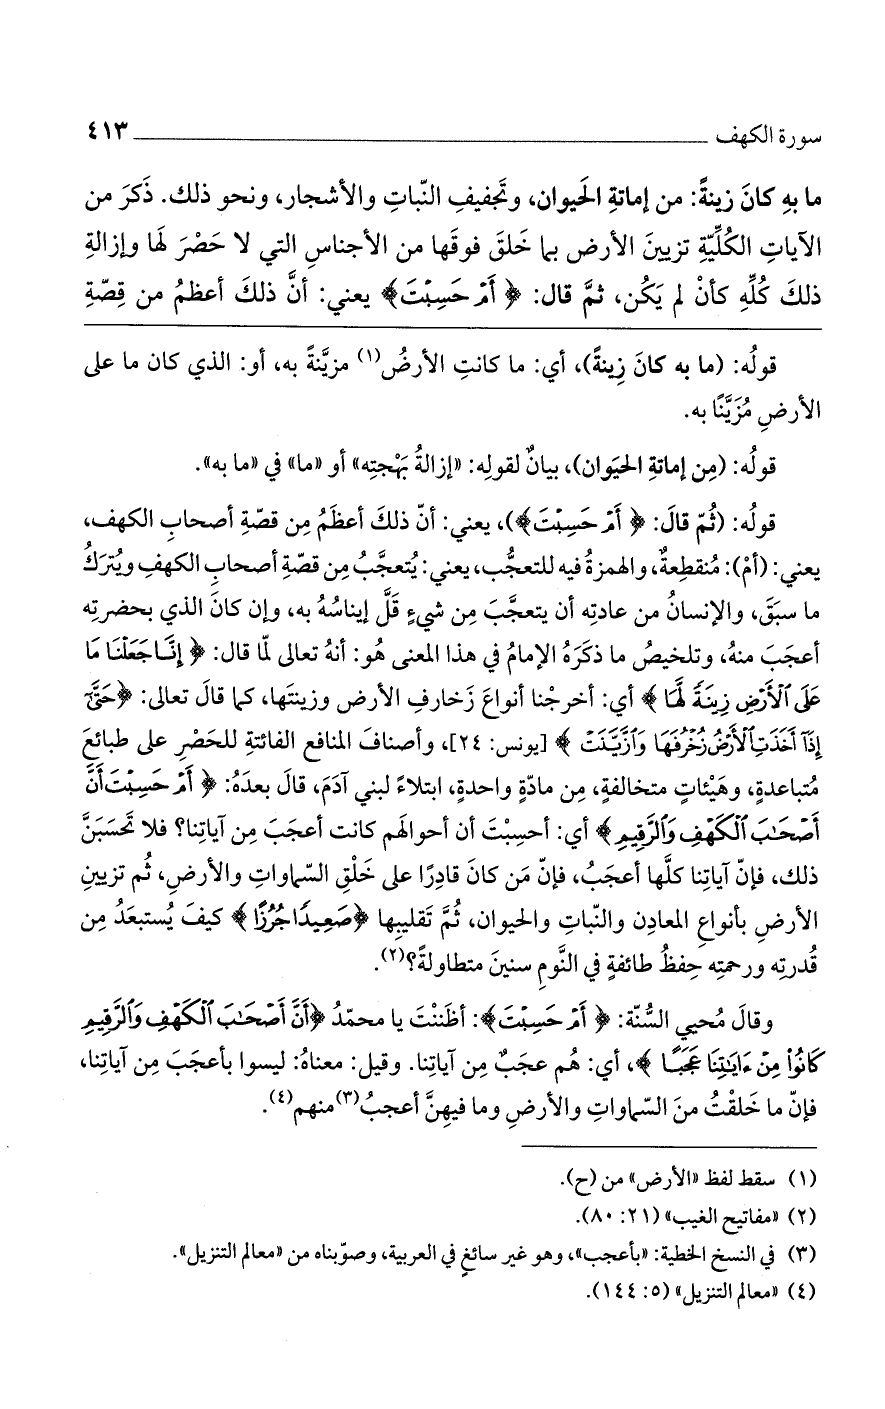 سورة الكهف ٤١٣
ما بهِ كانَ زينةً: من إماتةِ الحَيوان، وتَجفيفِ النّباتِ والأشجار، ونحو ذلك. ذَكَرَ من
الآياتِ الكُلِّيّةِ تزيينَ الأرض بما خَلقَ فوقَها من الأجناسِ التي لا حَصْرَ لها وإزالةِ
ذلكَ كُلِّهِ كأنْ لم يَكُن، ثمَّ قال: ﴿أَمْ حَسِبْتَ﴾ يعني: أنَّ ذلكَ أعظمُ من قِصّةِ
قولُه: (ما به كانَ زِينةً)، أي: ما كانتِ الأرضُ(١) مزيَّنةً به، أو: الذي كان ما على
الأرضِ مُزَيَّنًا به.
قولُه: (مِن إماتةِ الحيَوان)، بيانٌ لقولِه: «إزالةُ بَهْجتِه» أو «ما» في «ما به».
قولُه: (ثُمّ قالَ: ﴿أَمْ حَسِبْتَ﴾)، يعني: أنّ ذلكَ أعظَمُ مِن قصّةِ أصحابِ الكهف،
يعني: (أمْ): مُنقطِعةٌ، والهمزةُ فيه للتعجُّب، يعني: يُتعجَّبُ مِن قصّةِ أصحابِ الكهفِ ويُترَكُ
ما سبَقَ، والإنسانُ من عادتِه أن يتعجَّبَ مِن شيءٍ قَلَّ إيناسُهُ به، وإن كانَ الذي بحضرتِه
أعجَبَ منهُ، وتلخيصُ ما ذكَرَهُ الإمامُ في هذا المعنى هُو: أنهُ تعالى لمّا قال: ﴿إِنَّا جَعَلْنَا مَا
عَلَى ٱلْأَرْضِ زِينَةً لَّهَا﴾ أي: أخرجْنا أنواعَ زَخارفِ الأرض وزينتَها، كما قالَ تعالى: ﴿حَتَّىٰٓ
إِذَآ أَخَذَتِ ٱلْأَرْضُ زُخْرُفَهَا وَٱزَّيَّنَتْ﴾ [يونس: ٢٤]، وأصنافَ المنافع الفائتةِ للحَصْرِ على طبائعَ
مُتباعدةٍ، وهَيْئاتٍ متخالفةٍ، مِن مادّةٍ واحدةٍ، ابتلاءً لبني آدَمَ، قالَ بعدَهُ: ﴿أَمْ حَسِبْتَ أَنَّ
أَصْحَٰبَ ٱلْكَهْفِ وَٱلرَّقِيمِ﴾ أي: أحسِبْتَ أن أحوالَهم كانت أعجَبَ مِن آياتِنا؟ فلا تَحسَبَنَّ
ذلك، فإنّ آياتِنا كلَّها أعجَبُ، فإنّ مَن كانَ قادِرًا على خَلْقِ السّماواتِ والأرضِ، ثُم تزيينِ
الأرضِ بأنواعِ المعادِن والنّباتِ والحيوان، ثُمَّ تَقليبِها ﴿صَعِيدًا جُرُزًا﴾ كيفَ يُستبعَدُ مِن
قُدرتِه ورحمتِه حِفظُ طائفةٍ في النَّومِ سنينَ متطاولةً؟(٢).
وقالَ مُحيي السُّنّة: ﴿أَمْ حَسِبْتَ﴾: أظَننْتَ يا محمّدُ ﴿أَنَّ أَصْحَٰبَ ٱلْكَهْفِ وَٱلرَّقِيمِ
كَانُوا۟ مِنْ ءَايَٰتِنَا عَجَبًا﴾، أي: هُم عجَبٌ مِن آياتِنا. وقيل: معناهُ: ليسوا بأعجَبَ مِن آياتِنا،
فإنّ ما خَلقْتُ منَ السّماواتِ والأرضِ وما فيهِنَّ أعجبُ(٣) منهم(٤).
(١) سقط لفظ «الأرض» من (ح).
(٢) «مفاتيح الغيب» (٢١: ٨٠).
(٣) في النسخ الخطية: «بأعجب»، وهو غير سائغٍ في العربية، وصوّبناه من «معالم التنزيل».
(٤) «معالم التنزيل» (٥: ١٤٤).